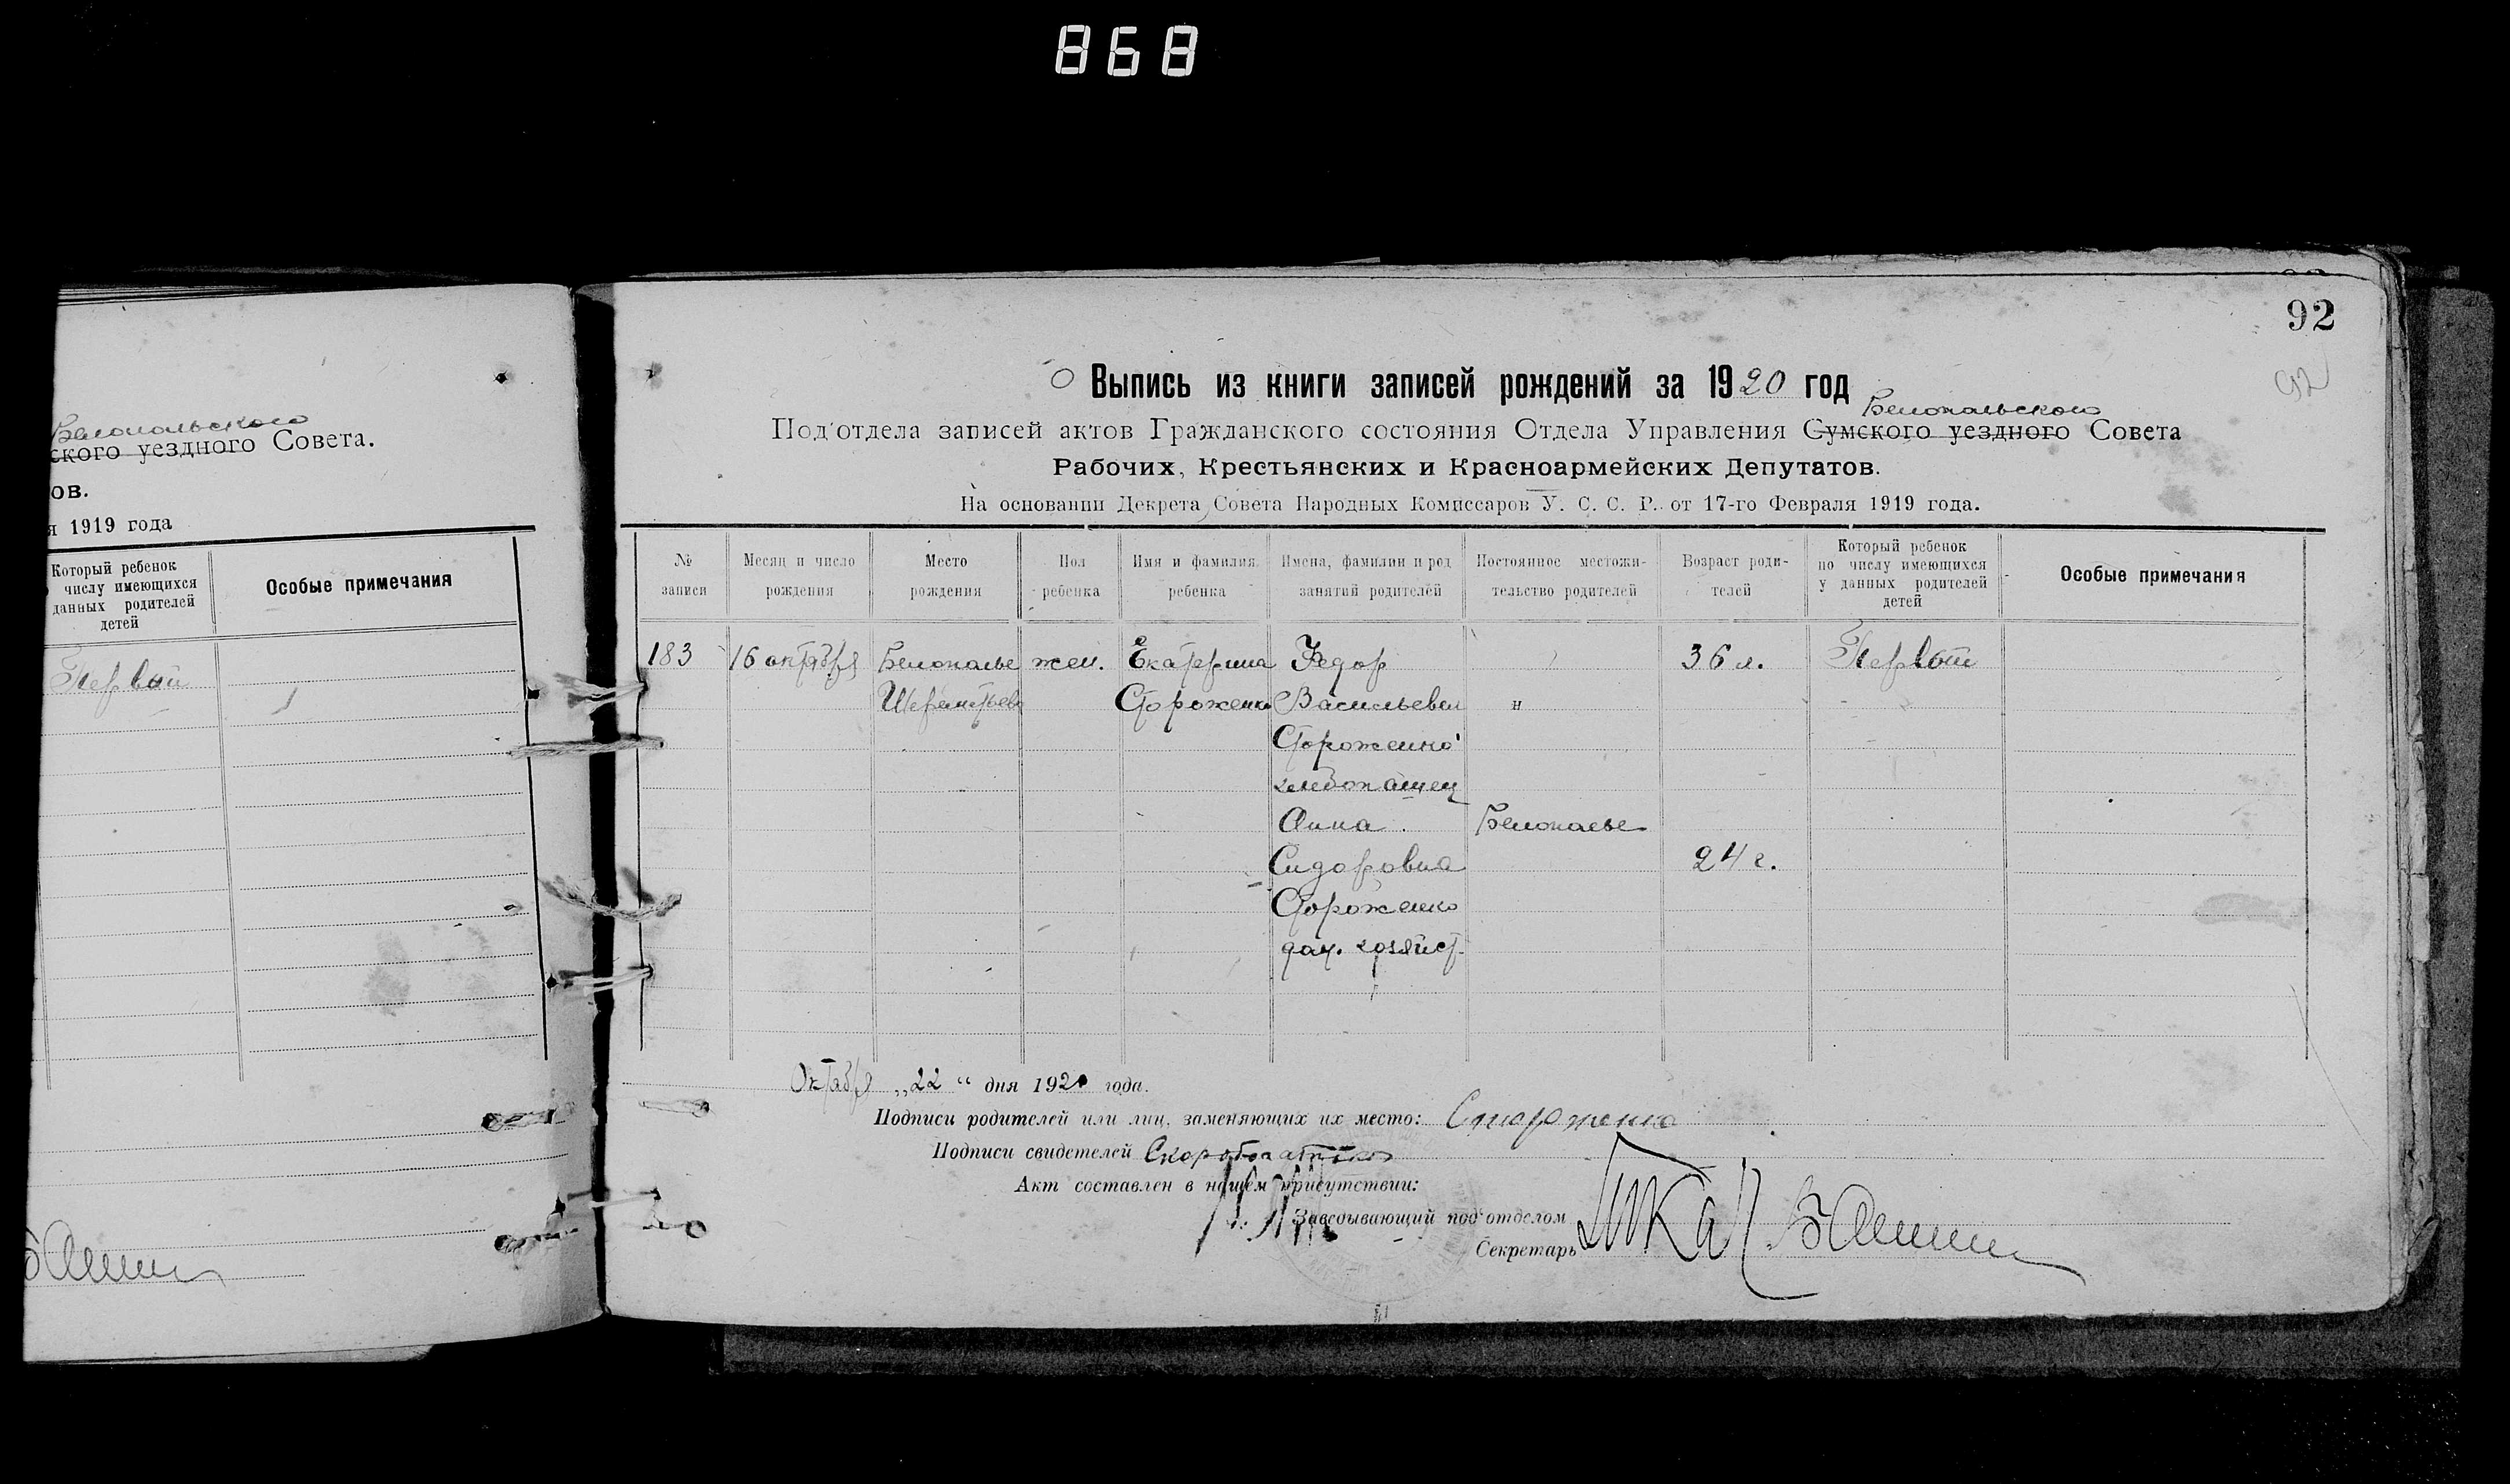 868
92
92
Белопольского
ского уездного Совета.
ов.
я 1919 года
Который ребенок
числу имеющихся
данных родителей
детей
Особые примечания
Первый
Выпись из книги записей рождений за 1920 год
Белопольского
Под'отдела записей актов Гражданского состояния Отдела Управления Сумского уездного Совета
Рабочих, Крестьянских и Красноармейских Депутатов.
На основании Декрета Совета Народных Комиссаров У. С. С. Р. от 17-го Февраля 1919 года.
№ записи
Месяц и число рождения
Место рождения
Пол ребенка
Имя и фамилия ребенка
Имена, фамилии и род занятий родителей
Постоянное местожительство родителей
Возраст родителей
Который ребенок по числу имеющихся у данных родителей детей
Особые примечания
183 16 октября Белополье жен. Екатерина Федор 36 л. Первый
Стороженко Васильевич
Стороженко
хлебопашец
Анна Белополье
Сидоровна 24 г.
Стороженко
дом. хозяйст.
Октября „22“ дня 1920 года.
Подписи родителей или лиц, заменяющих их место: Стороженко
Подписи свидетелей
Акт составлен в нашем присутствии:
Заведывающий под'отделом
Секретарь